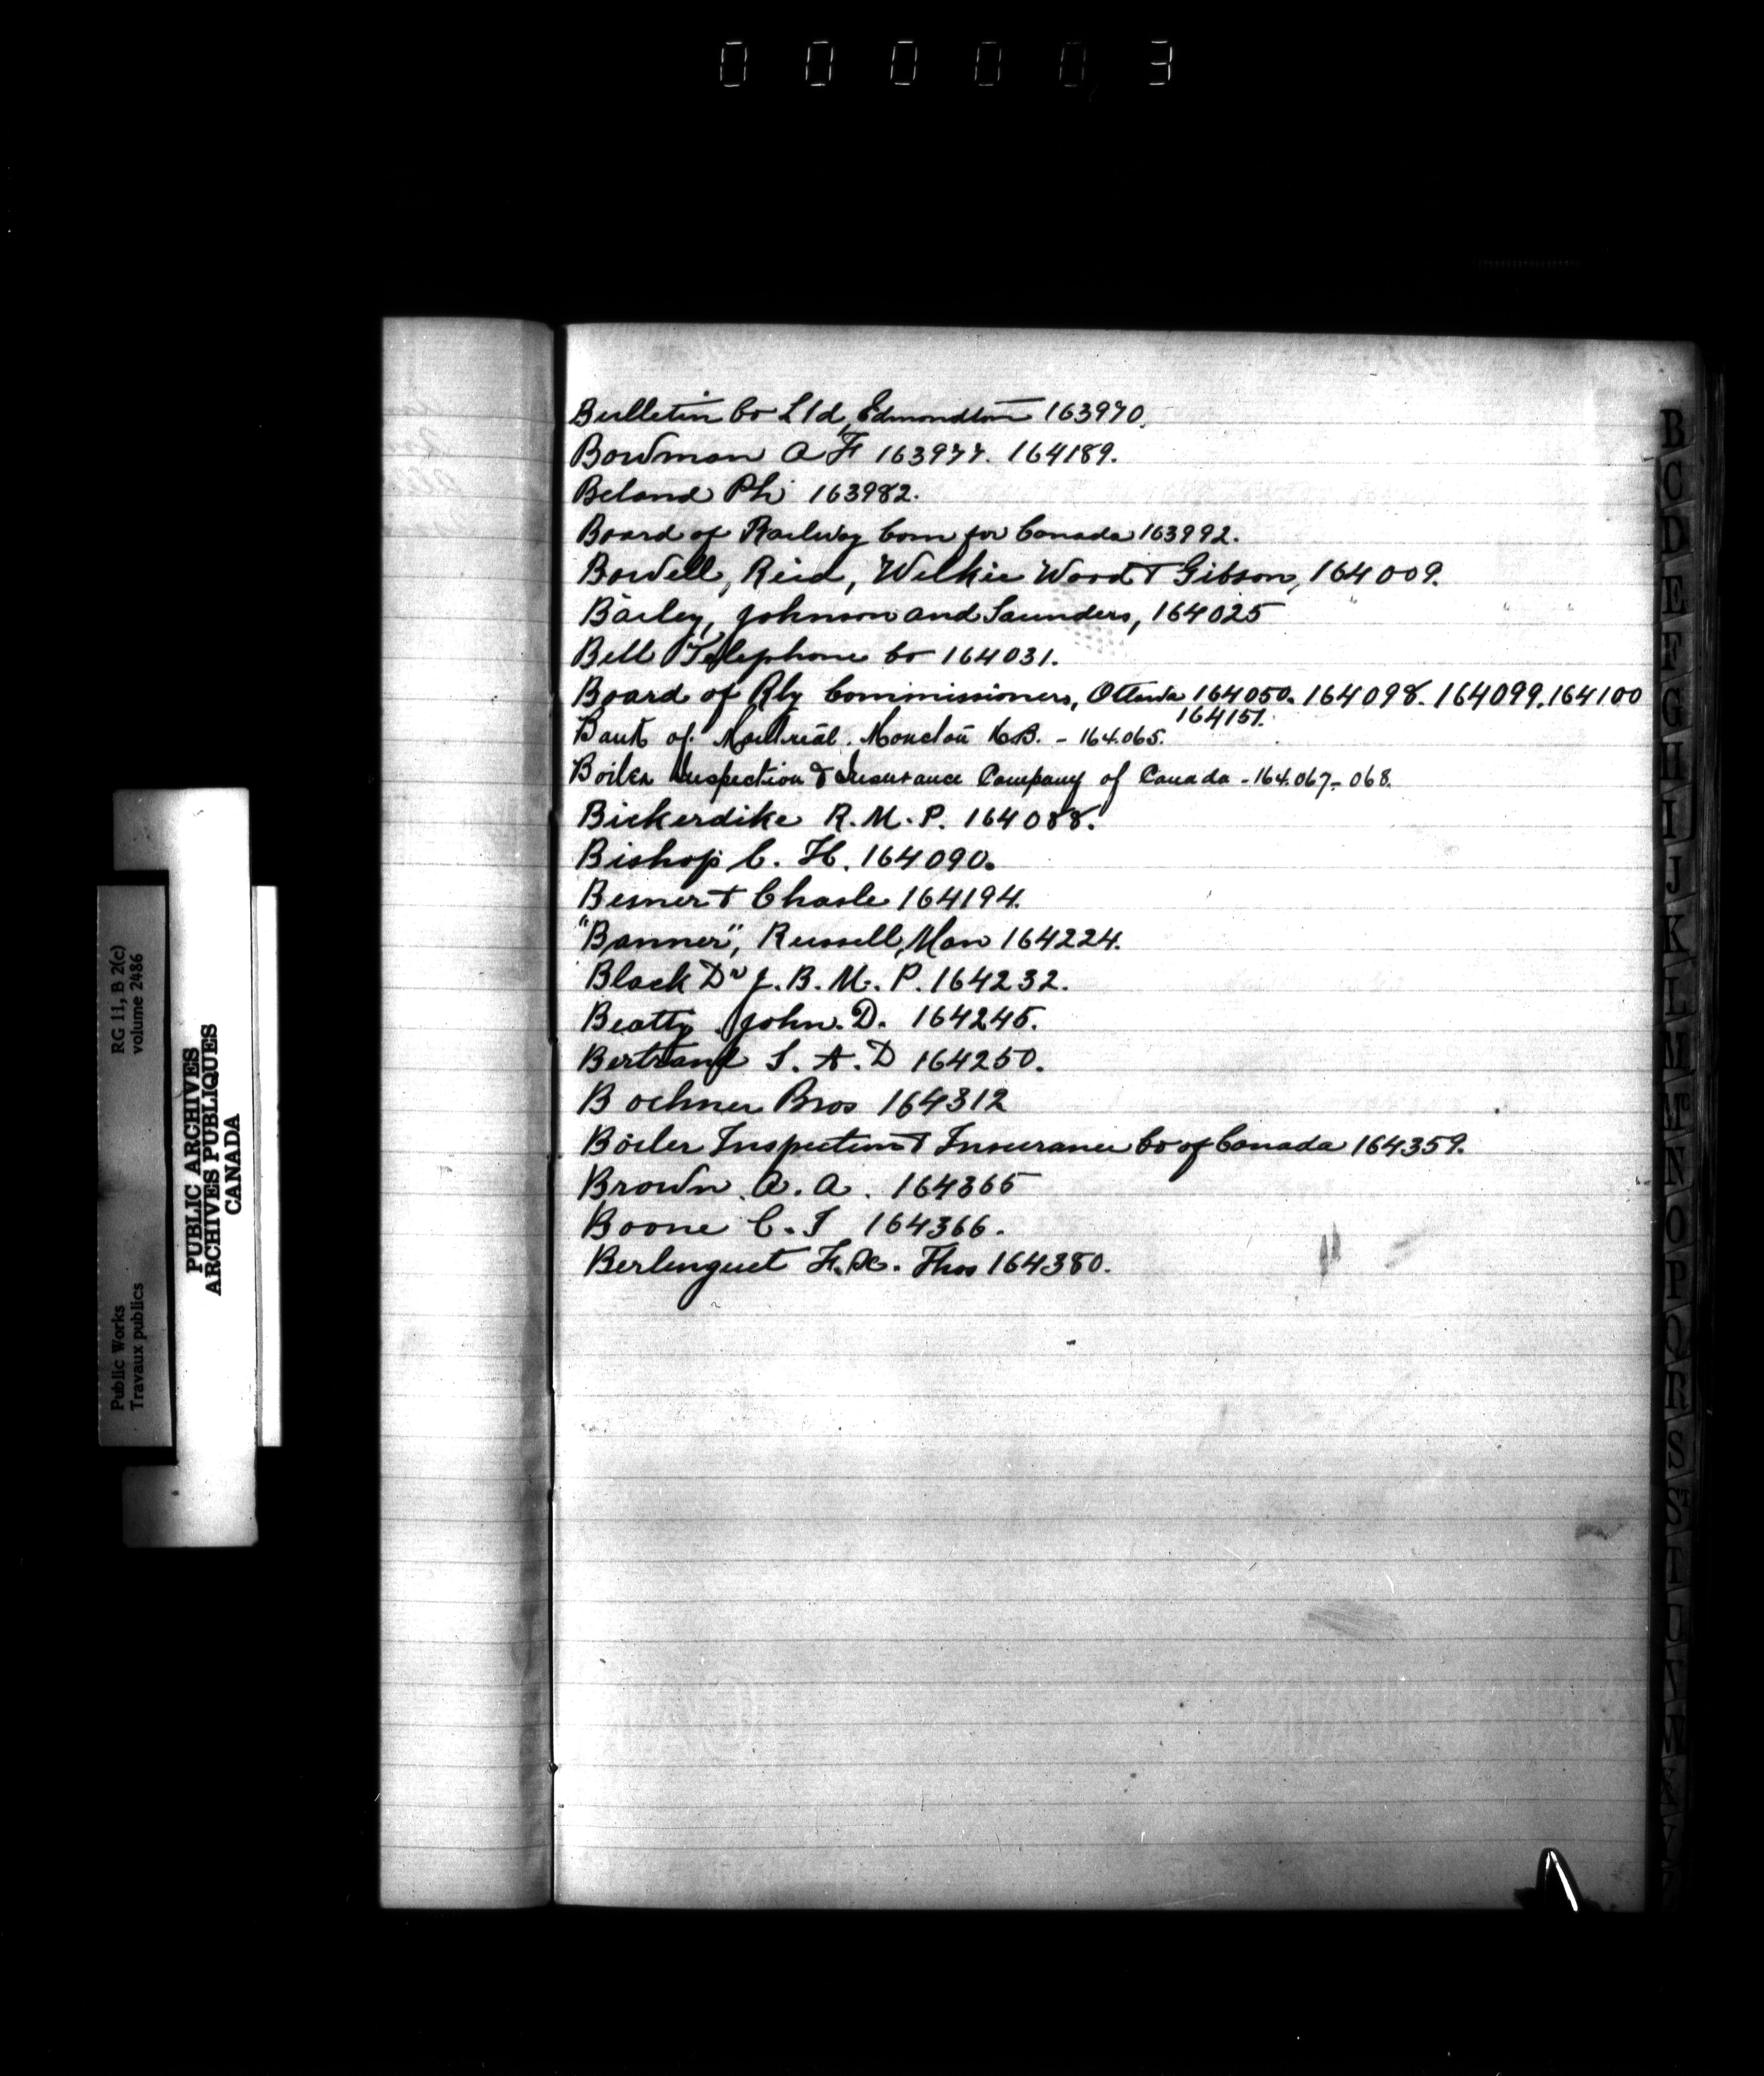 000003
Bulletin Co Ltd, Edmonton 163970.
Bowman A F 163977. 164189.
Beland Ph 163982.
Board of Railway Com for Canada 163992.
Bowell, Reid, Wilkie Wood & Gibson, 164009.
Bailey, Johnson and Saunders, 164025
Bell Telephone Co 164031.
Board of Rly Commissioners, Ottawa 164050. 164098. 164099. 164100
164151.
Bank of Montreal. Moncton N.B. - 164.065.
Boiler Inspection & Insurance Company of Canada - 164.067 - 068.
Bickerdike R. M. P. 164088.
Bishop C. H. 164090.
Besner & Chasle 164194.
"Banner", Russell, Man 164224.
Black Dr J. B. M. P. 164232.
Beatty John. D. 164245.
Bertrand S. A. D 164250.
Boehner Bros 164312
Boiler Inspection & Insurance Co of Canada 164359.
Brown. A. A. 164365
Boone C. T 164366.
Berlinguet F. X. Thos 164380.
B
C
D
E
F
G
H
I
J
K
L
M
N
O
P
Q
R
S
T
U
RG 11, B 2(c)
volume 2486
Public Works
Travaux publics
PUBLIC ARCHIVES
ARCHIVES PUBLIQUES
CANADA